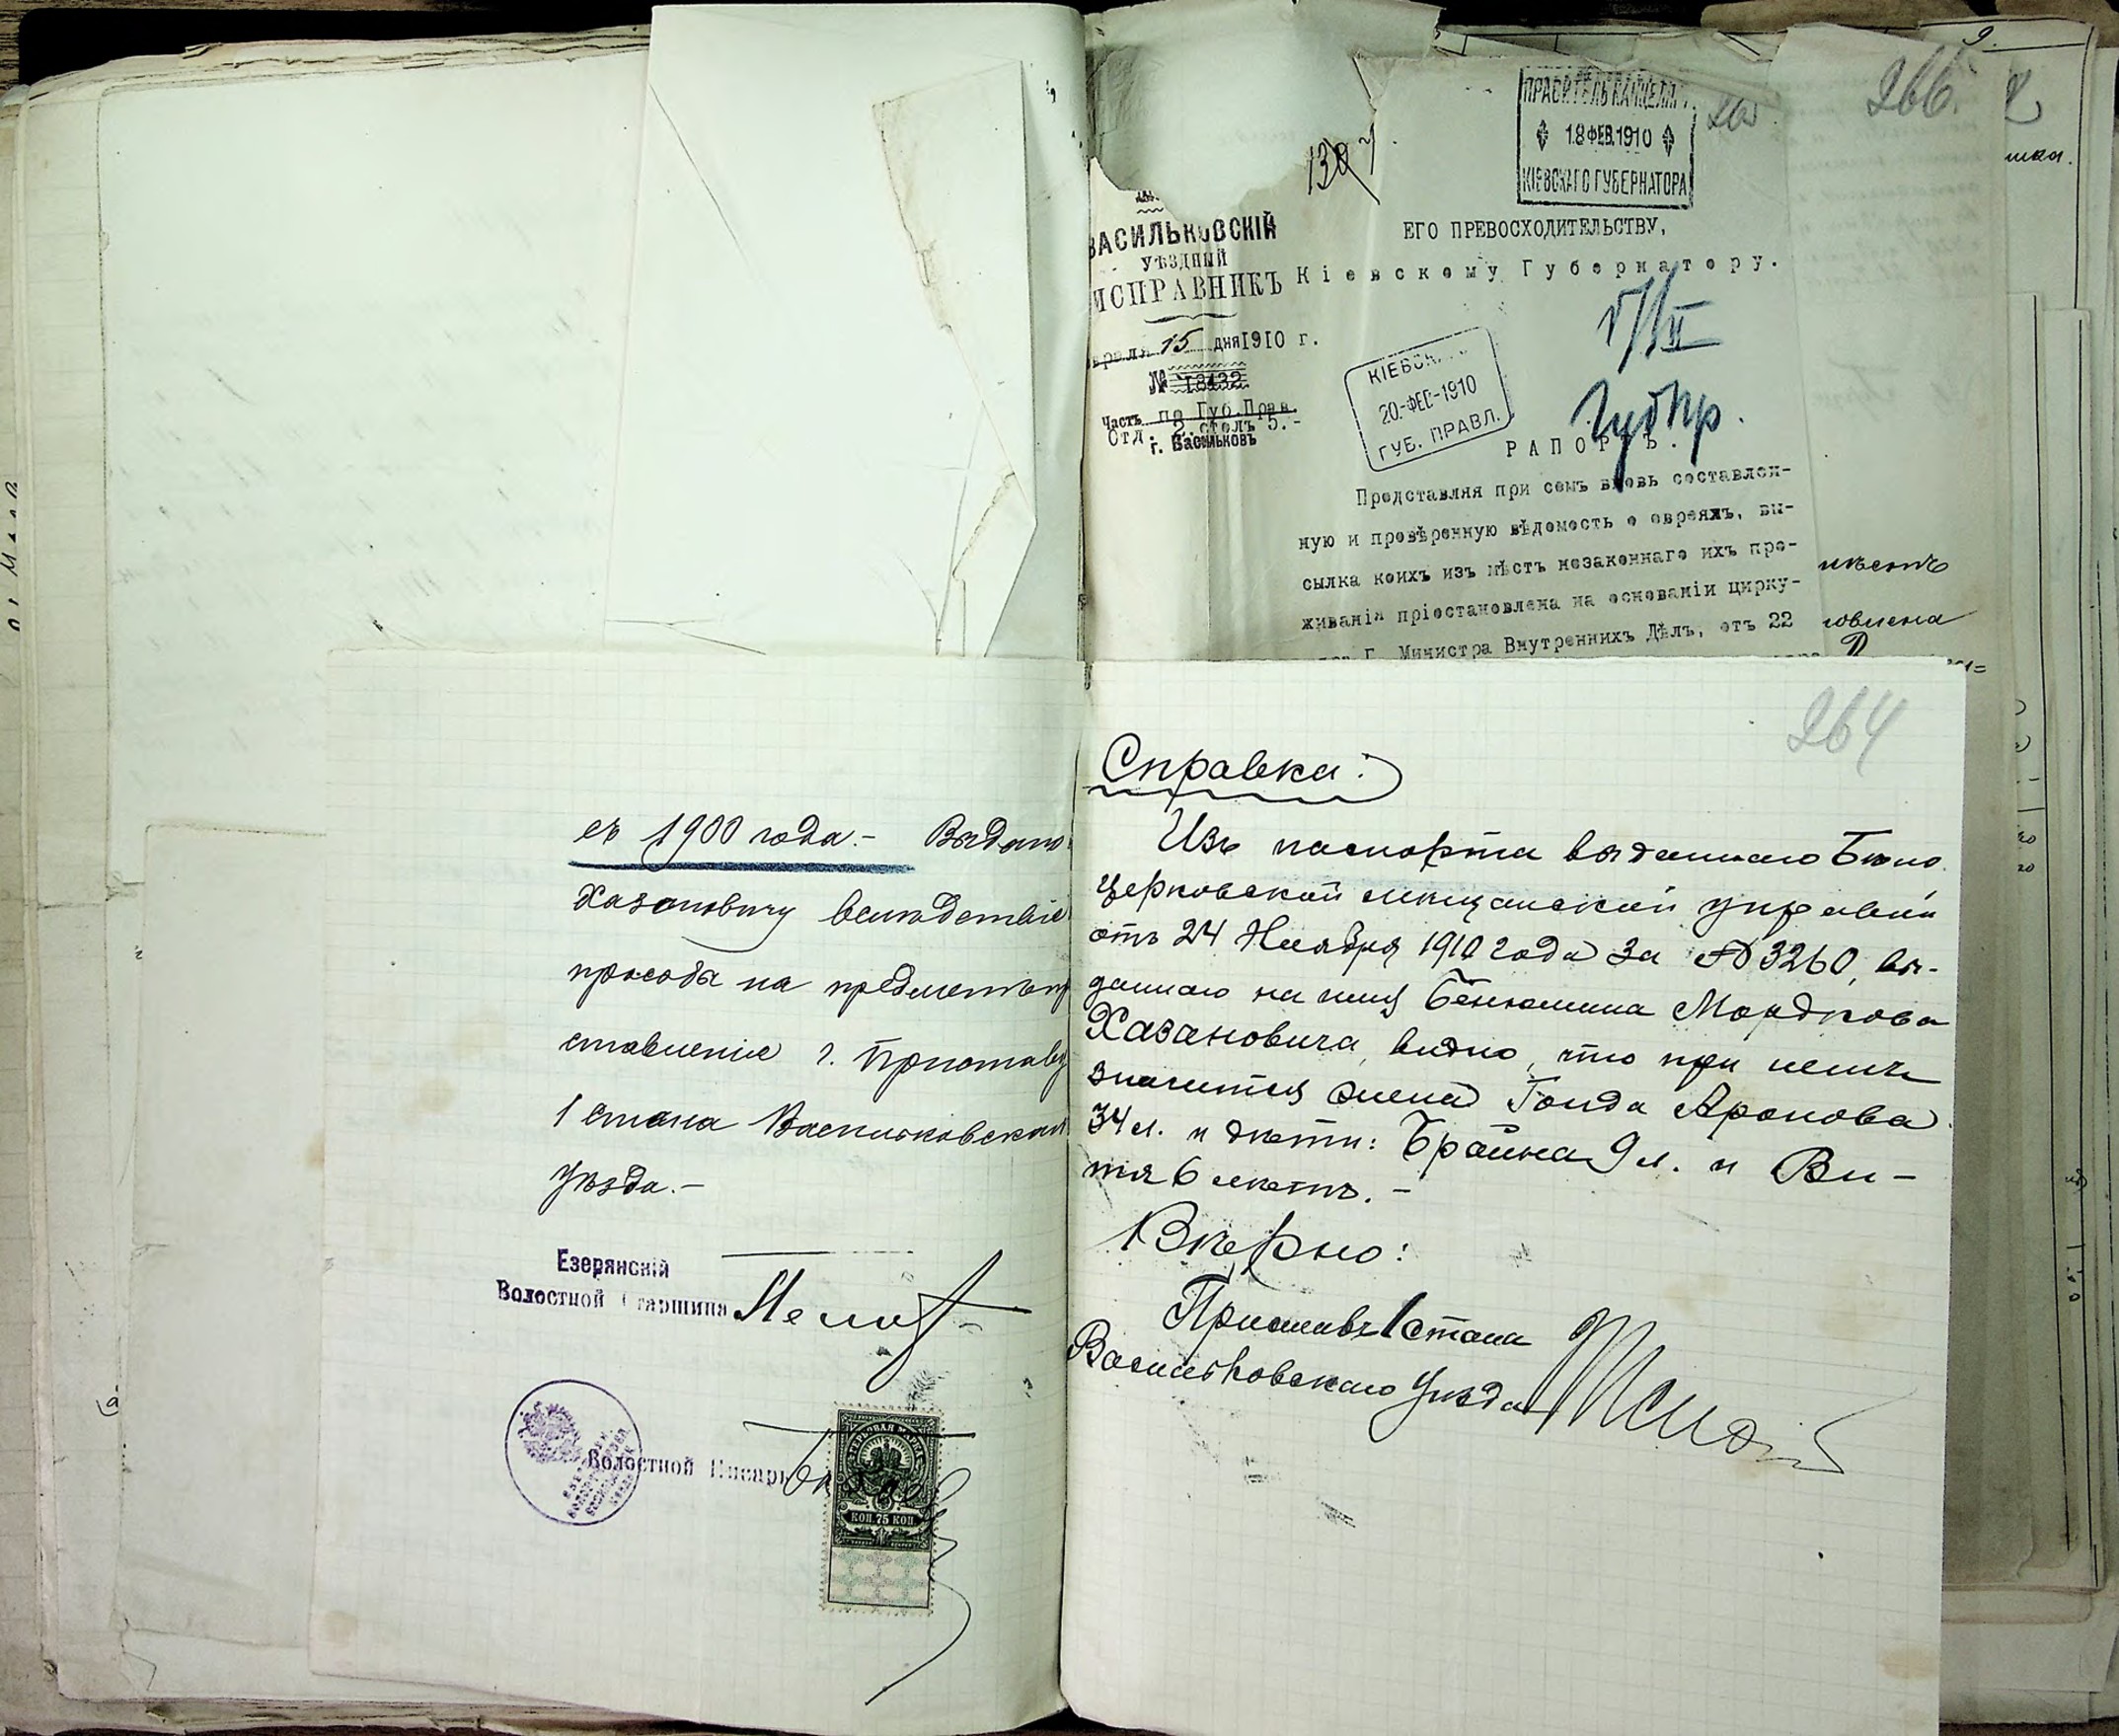 съ 1900 года.- Выдано
Хазановичу вслѣдствіе
просьбы на предметъ пр
ставленія г. Приставу
1 стана Васильковскаго
уѣзда.-
Езерянскій
Волостной Старшина
Волостной Писарь
ГЕРБОВАЯ МАРКА
КОП. 75 КОП.
266.
ПРАВИТЕЛЬ КАНЦЕЛЯР.
18 ФЕВ. 1910
КІЕВСКАГО ГУБЕРНАТОРА
ВАСИЛЬКОВСКІЙ
УѢЗДНЫЙ
ИСПРАВНИКЪ
враля 15 дня 1910 г.
№ 18432
Часть по Губ.Прав.
Отд. 2. столъ 5.-
г. Васильковъ
ЕГО ПРЕВОСХОДИТЕЛЬСТВУ,
Кіевскому Губернатору.
Губ Пр.
КІЕВСК
20-ФЕВ-1910
ГУБ. ПРАВЛ.
РАПОРТЪ.
Представляя при семъ вновь составлен-
ную и провѣренную вѣдомость о евреяхъ, вы-
сылка коихъ изъ мѣстъ незаконнаго ихъ про-
живанія пріостановлена на основаніи цирку-
Г. Министра Внутреннихъ Дѣлъ, отъ 22
264
Справка:
Изъ паспорта выданнаго Бѣло
церковской мѣщанской управой
отъ 24 Ноября 1910 года за № 3260, вы-
даннаго на имя Бенюмина Мордкова
Хазановича, видно, что при немъ
значится жена Гольда Аронова
34 л. и дѣти: Брайна 9 л. и Ви-
тя 6 лѣтъ.-
Вѣрно:
Приставъ 1 стана
Васильковскаго уѣзда